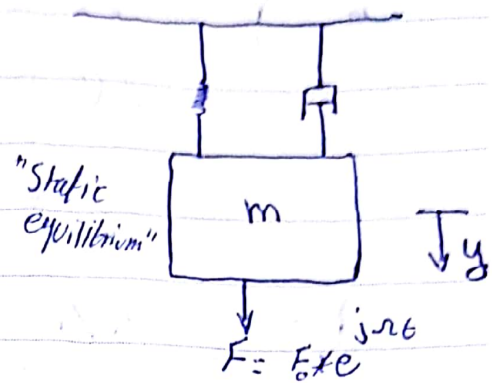 "Static
equilibrium"
m
y
F = F₀ * e^jΩt